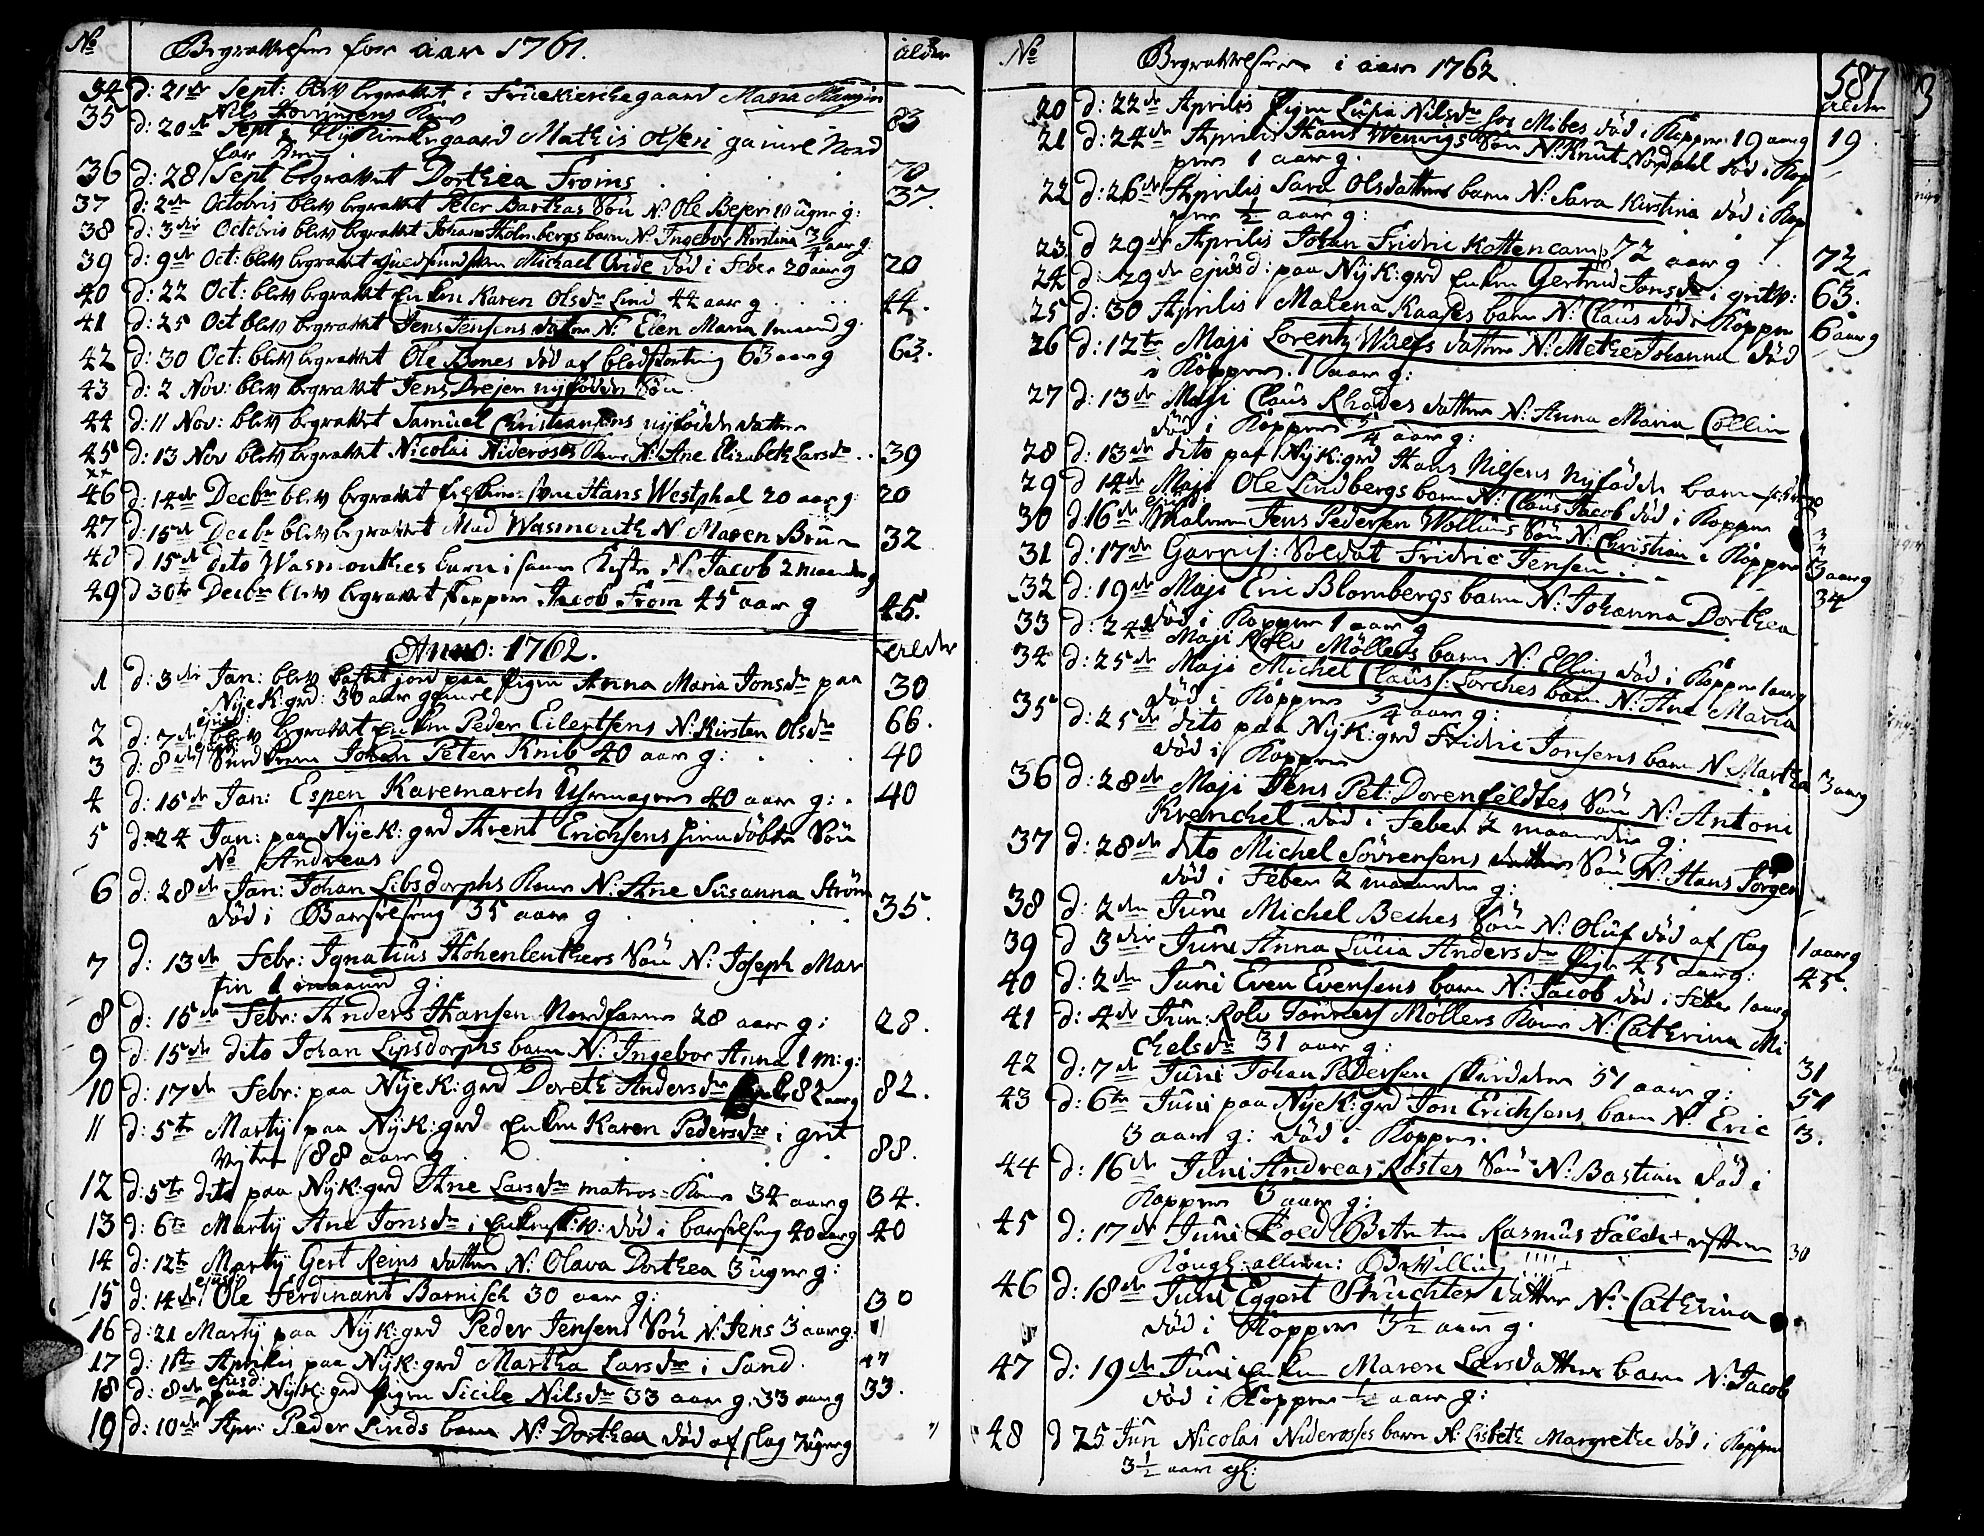 No Begravelser for aar 1761. alder
34 d: 21de Sept: blev begravet i Fruekirchegaard Maria
35 Nils Kone
d: 20de Sept Mathis Olsen gamel Nord
83
36 d: 28 Sept begravet Dorthea Froms 70
37 d: 2de Octobris blev begravet Peter Barthas Søn N: Ole Bejer 10 uger g: 37.
38 d: 3die Octobris blev begravet Johan Holmbergs barn N. Ingebor Kirstina 3/4 aar g:
39 d: 9de Oct: blev begravet Michael Oxide død i feber 20 aar g 20
40 d: 22 Oct: blev begravet Enken Karen Olsdr Lind 44 aar g 44.
41 d: 25 Oct blev begravet Jens Jensens datter N: Elen Maria 1 maand g.
42 d: 30 Oct: blev begravet Ole Bones død af blodstørtning 63 aar g 63.
43 d: 2 Nov: blev begravet Jens Drejer nyfødder Søn
44 d: 11 Nov: blev begravet Samuel Christiansens nyfødde datter
45 d: 13 Nov blev begravet Nicolai Niderøses Kone N: Ane Elizabeth Larsdr 39
46 d: 14de Decbr blev begravet Hans Westphal 20 aar g: 20
47 d: 15de Decbr blev begravet Mad Wasmouth N Maren Brun 32
48 d 15de dito Wasmouthes barn i samme kiste N. Jacob 2 maaneder g
49 d 30te Decbr blev begravet Jacob From 45 aar g 45.
Anno: 1762. alder
1 d: 3die Jan: blev kastet jord paa Pigen Anna Maria Jonsdr paa
Nye K: grd: 30 aar gamel 30
2 d: 7de ejusd: blev begravet Enken Peder Eilertsens N: Kirsten Olsdr 66.
3 d: 8de Johan Peter Knib 40 aar g: 40
4 d: 15de Jan: Espen Karemarch 40 aar g: 40
5 d: 24 Jan: paa Nye K: grd Arent Erichsens Søn
No Andreas
6 d: 28de Jan: Johan Libsdorphs Kone N: Ane Susanna Strøm
død i Barselseng 35 aar g 35.
7 d: 13de Febr: Ignatius Hohenleuthers Søn N: Joseph Mar
tin 1 maaned g:
8 d: 15de Febr: Anders Hansen Nordfarer 28 aar g: 28.
9 d: 15de dito Johan Lipsdorphs barn N: Ingebor Anna 1 m: g:
10 d: 17de Febr: paa Nye K: grd Doreth Andersdr 82 aar g 82.
11 d: 5te Martij paa Nye K: grd Enken Karen Pedersdr i grit
88 aar g 88.
12 d: 5te dito paa Nye K: grd Ane Larsdr matros Kone 34 aar g 34.
13 d: 6te Martij Ane Jonsdr død i barselseng 40 aar g 40
14 d: 12te Martij Gert Reins datter N: Olava Dorthea 3 uger g:
15 d: 14de ejusd: Ole Ferdinant Barnisch 30 aar g: 30
16 d: 21 Martij paa Nye K: grd Peder Jensens Søn N: Jens 3 aar g:
17 d: 1te Aprilis paa Nye K: grd Martha Larsdr i Sand.
18 d: 8de ejusd: paa Nye K: grd Pigen Sicile Nilsdr 33 aar g. 33 aar g 33.
19 d: 10de Apr: Peder Linds barn N: Dorthea død af slag 7 uger g
No Begravelser i aar 1762. 587
alder
20 d: 22de Aprilis Pigen Lusia Nilsdr hos Mibes død i Kopper 19 aar g 19
21 d: 24de Aprilis Hans Wenvigs Søn N: Knut Nordahl død i Kop
per 1 aar g.
22 d: 26de Aprilis Sara Olsdatters barn N: Sara Kirstina død i Kop
per 1/2 aar g:
23 d 29de Aprilis Johan Fridric Kottencamp 72 aar g 72
24 d: 29de ejusd: paa Nye K: grd Enken Gertrud Jonsdr i gritv: 63.
25 d: 30 Aprilis Malena Kaases barn N: Claus død i Kopper 6 aar g
26 d: 12te Maji Lorentz Wulfs datter N: Methe Johanna død
i Kopper 1 aar g:
27 d: 13de Maji Claus Rhodes datter N: Anna Maria Collin
død i Kopper 5/4 aar g:
28 d: 13de dito paa Nye K: grd Hans Nilsens nyfødde barn
29 d 14de Maji Ole Lindbergs barn N: Claus Jacob død i Kopper
30 d 16de ejusd: Jens Pedersen Wollums Søn N: Christian i Kopper 3 aar g
31 d: 17de Garnis: Soldat Fridric Jensen 34
32 d: 19de Maji Eric Blombergs barn N: Johanna Dorthea
død i Kopper 1 aar g
33 d: 24de Maji Rolv Møllers barn N. Elling død i Kopper 1 aar g
34 d: 25de Maji Michel Claus: Lorches barn N: Ane Maria
død i Kopper 3/4 aar g:
35 d: 25de dito paa Nye K: grd Fridric Jonsens barn N Martha
død i Kopper 3 aar g
36 d: 28de Maji Jens Pet: Dorenfeldtes Søn N: Antoni
Krenchel død i Feber 2 maaneder g:
37 d: 28de dito Michel Sørensens Søn N: Hans Jørgen
død i Feber 2 maaneder g:
38 d: 2den Juni Michel Beches Søn N: Oluf død af slag 1 aar g
39 d 3die Juni Anna Lucia Andersdr Pige 45 aar g: 45.
40 d: 2de Juni Even Evensens barn N: Jacob død i feber 1 aar g
41 d: 4de Jun: Rolv Tønners Møllers Kone N: Catherina Mi
chelsdr 31 aar g: 31
42 d: 7de Juni Johan Pedersen skredder 51 aar g: 51
43 d: 6te Juni paa Nye K: grd Jon Erichsens barn N: Eric
3 aar g: død i Kopper. 3.
44 d: 16de Juni Andreas Røstes Søn N: Bastian død i
Kopper 3 aar g:
45 d: 17de Juni Rasmus Falch efter
Kongl: allern: Bevilling 30
46 d: 18de Juni Eggert Struchtes datter N: Catherina
død i Kopper 3 1/2 aar g.
47 d: 19de Juni Enken Maren Larsdatters barn N: Jacob
død i Kopper 1/2 aar g:
48 d 25 Jun Nicolai Niderøsses barn N: Lisbeth Margrethe død i Kopper
3 1/2 aar gl: